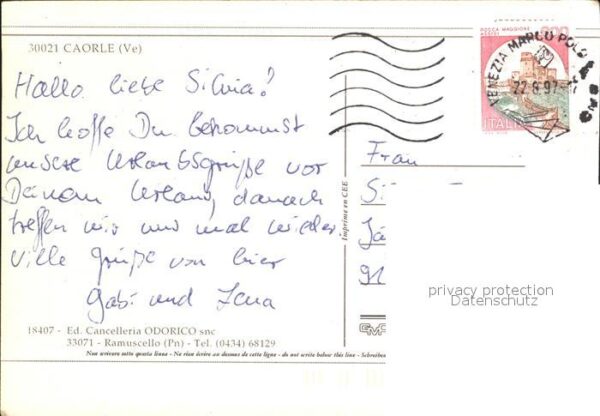 30021 CAORLE (Ve)
Hallo liebe Silvia!
Ich hoffe Du bekommst
unsere Urlaubsgrüße vor
Deinem Urlaub, danach
treffen wir uns mal wieder.
Viele Grüße von hier
Gabi und Jana
18407 - Ed. Cancelleria ODORICO snc
33071 - Ramuscello (Pn) - Tel. (0434) 68129
Non scrivere sotto questa linea - Ne rien écrire au dessous de cette ligne - do not write below this line - Schreiben
Imprime en CEE
ROCCA MAGGIORE
ASSISI
ITALIA
VENEZIA MARCO POLO
22.8.97
Frau
Si
Jä
91
privacy protection
Datenschutz